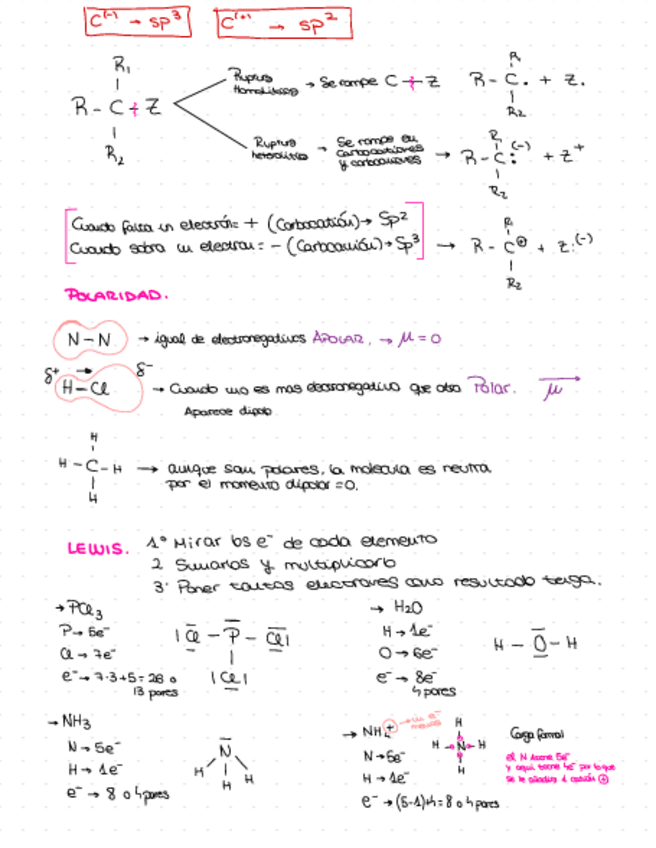 C(-) → sp³
C(+) → sp²
R₁
R - C + Z
R₂
Ruptura Homolítica → Se rompe C + Z
R
R - C. + Z.
R₂
Ruptura heterolítica → Se rompe en carbocationes y carboaniones →
R₁
R - C: (-) + Z⁺
R₂
Cuando falta un electrón = + (Carbocatión) → Sp²
Cuando sobra un electron = - (Carboanión) → Sp³
→
R
R - C⊕ + Z:(-)
R₂
POLARIDAD.
N - N → igual de electronegativos APOLAR, → μ = 0
δ+ δ-
H - Cl → Cuando uno es mas electronegativo que otro Polar. μ
Aparece dipolo
H
H - C - H → aunque sean polares, la molecula es neutra
H
por el momento dipolar = 0.
LEWIS. 1º Mirar los e⁻ de cada elemento
2 Sumarlos y multiplicarlo
3· Poner tantos electrones como resultado tenga.
→ PCl₃
P → 5e⁻
Cl → 7e⁻
e⁻ → 7·3+5 = 26 o
13 pares
|Cl - P - Cl|
|Cl|
→ H₂O
H → 1e⁻
O → 6e⁻
e⁻ → 8e⁻
4 pares
H - O - H
→ NH₃
N → 5e⁻
H → 1e⁻
e⁻ → 8 o 4 pares
N
H H H
→ NH₄+ → un e⁻ menos
N → 5e⁻
H → 1e⁻
e⁻ → (5-1)+4 = 8 o 4 pares
H
H - N - H
H
Carga formal
el N tiene 5e⁻
y aqui tiene 4e⁻ por lo que
se le añadira 1 cation ⊕